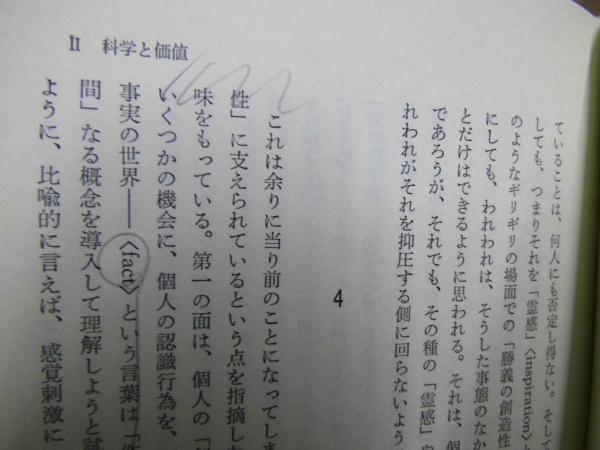 II 科学と価値
ていることは、何人にも否定し得ない。そして
しても、つまりそれを「霊感」〈inspiration〉
のようなギリギリの場面での「勝義の創造性
にしても、われわれは、そうした事態のなか
とだけはできるように思われる。それは、個
であろうが、それでも、その種の「霊感」
れわれがそれを抑圧する側に回らないよう
4
これは余りに当り前のことになってしま
性」に支えられているという点を指摘した
味をもっている。第一の面は、個人の「
いくつかの機会に、個人の認識行為を、
事実の世界――〈fact〉という言葉は「
間」なる概念を導入して理解しようと試
ように、比喩的に言えば、感覚刺激に